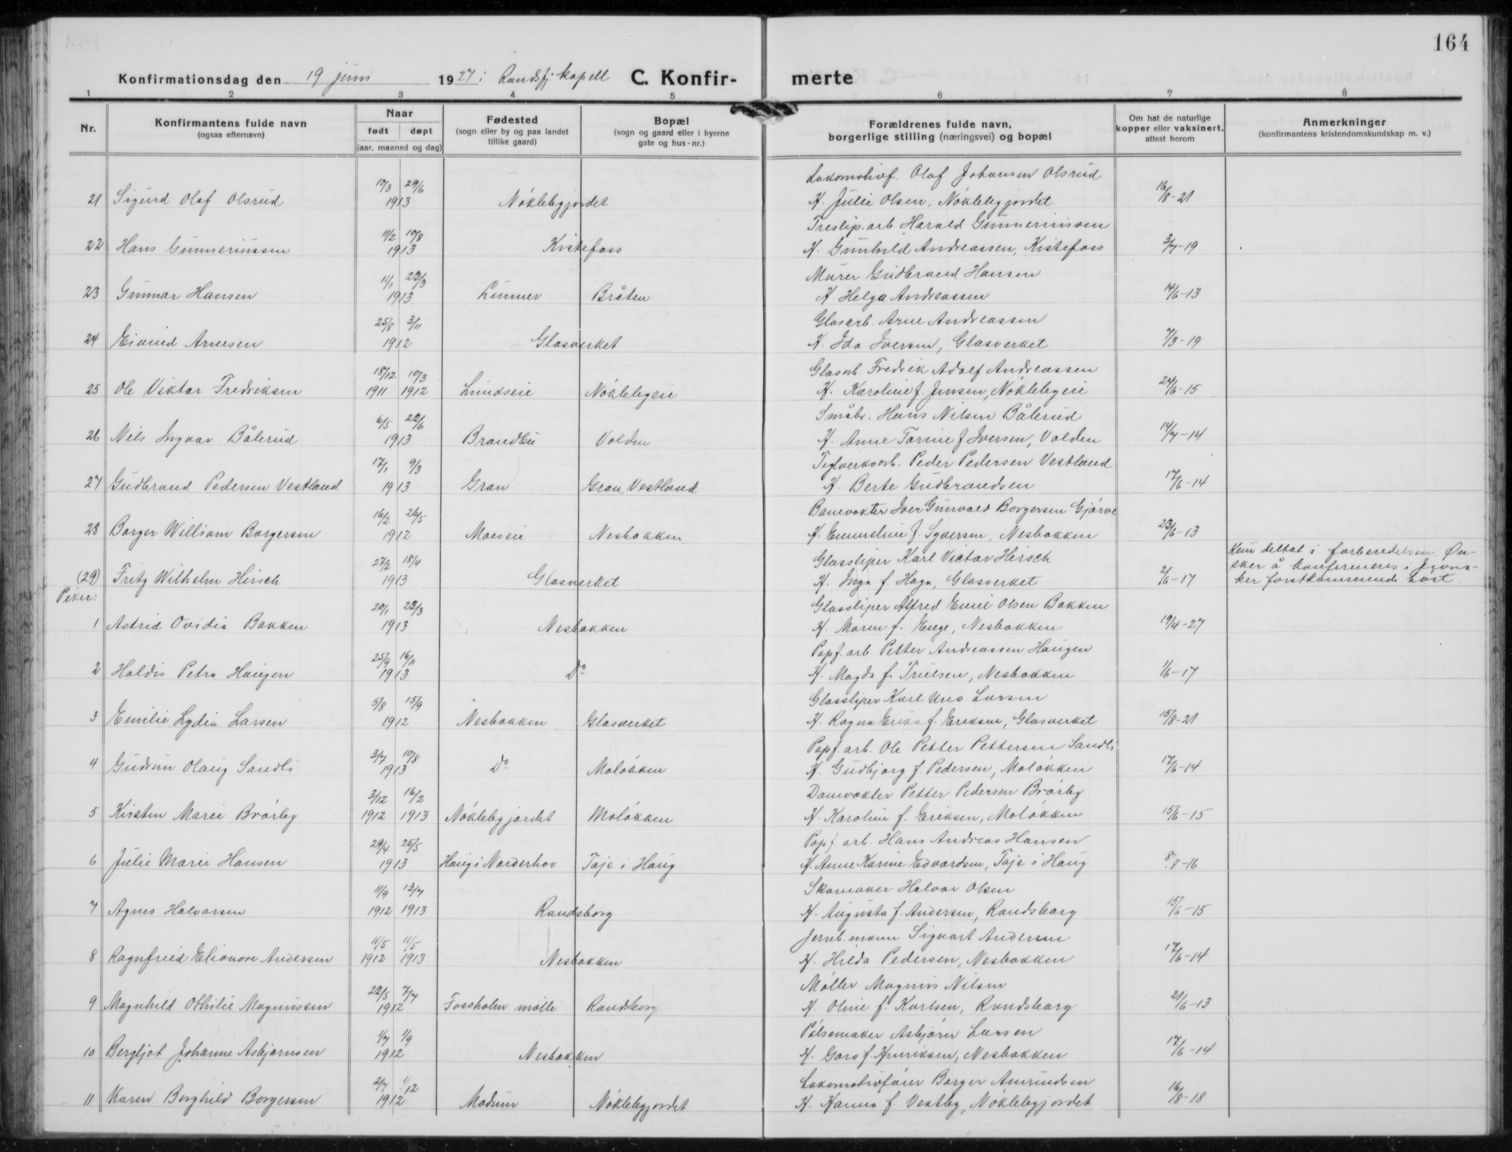 164
Konfirmationsdag den 19 juni 1927 i Randsfj. kapell C. Konfirmerte
1 2 3 4 5 6 7 8
Nr. Konfirmantens fulde navn (ogsaa efternavn) Naar født døpt (aar, maaned og dag) Fødested (sogn eller by og paa landet tillike gaard) Bopæl (sogn og gaard eller i byerne gate og hus-nr.) Forældrenes fulde navn, borgerlige stilling (næringsvei) og bopæl Om hat de naturlige kopper eller vaksinert, attest herom Anmerkninger (konfirmantens kristendomskundskap m. v.)
17/3 29/6 Lokomotivf. Olaf Johansen Olsrud
21 Sigurd Olaf Olsrud 1913 Nøklebyjordet K. Julie Olsen, Nøklebyjordet 16/8-21
11/2 10/8 Treslip.arb Harald Gunneriussen
22 Hans Gunneriussen 1913 Kistefoss K. Gunhild Andreassen, Kistefoss 3/7-19
11/1 23/3 Murer Gudbrand Hansen
23 Gunnar Hansen 1913 Lunner Bråten K Helga Andreassen 14/6-13
25/8 3/11 Glasarb. Arne Andreassen
24 Eivind Arnesen 1912 Glasverket K. Ida Iversen, Glasverket 7/3-19
18/12 10/3 Glasarb Fredrik Adolf Andreassen
25 Ole Viktor Fredriksen 1911 1912 Lundseie Nøklebyeie K. Karoline f Jensen, Nøklebyeie 24/6-15
6/5 22/6 Småbr. Hans Nilsen Bålerud
26 Nils Ingvar Bålerud 1913 Brandbu Volden K. Anne Torine f Iversen, Volden 14/7-14
17/1 9/3 Teglverksarb. Peder Pedersen Vestland
27 Gudbrand Pedersen Vestland 1913 Gran Gran, Vestland K Berte Gudbrandsen 17/6-14
16/2 26/5 Banevokter Iver Gunvald Borgersen Gjørve
28 Borger William Borgersen 1912 Moeseie Nesbakken K. Emmeline f Syversen, Nesbakken 23/6-13
27/2 18/4 Glassliper Karl Victor Hirsch Kun deltat i forberedelsen. Øn-
(29) Fritz Wilhelm Hirsch 1913 Glasverket K. Inga f. Haga, Glasverket 2/6-17 sker å konfirmeres i Jevna-
ker førstkommende høst.
Piker:
20/1 23/3 Glassliper Alfred Emil Olsen Bakken
1 Astrid Ovidia Bakken 1913 Nesbakken K. Maren f. Enge, Nesbakken 19/4-27
25/9 16/11 Papf. arb. Petter Andreassen Haugen
2 Haldis Petra Haugen 1913 Do K. Magda f. Truelsen, Nesbakken 1/6-17
5/8 15/9 Glassliper Karl Uno Larsen
3 Emilie Lydia Larsen 1912 Nesbakken Glasverket K. Ragna f. Eriksen, Glasverket 15/8-21
3/7 10/8 Papf. arb. Ole Petter Pettersen Sandli
4 Gudrun Olaug Sandli 1913 Do Moløkken K. Gudbjørg f. Pedersen, Moløkken 17/6-14
3/12 16/2 Damvokter Petter Pedersen Brørby
5 Kirsten Marie Brørby 1912 1913 Nøklebyjordet Moløkken K. Karoline f. Eriksen, Moløkken 15/6-15
29/4 25/5 Papf arb. Hans Andreas Hansen
6 Julie Marie Hansen 1913 Haug i Norderhov Toje i Haug K. Anne Karine Edvardsen, Toje i Haug 8/8-16
11/9 13/7 Skomaker Halvor Olsen
7 Agnes Halvorsen 1912 1913 Randsborg K. Augusta f. Andersen, Randsborg 15/6-15
11/5 11/5 Jernb. mann Sigvart Andersen
8 Ragnfried Elionore Andersen 1912 1913 Nesbakken K. Hilda Pedersen, Nesbakken 17/6-14
22/5 7/7 Møller Magnus Nilsen
9 Magnhild Othilie Magnussen 1912 Fossholm mølle Randsborg K. Oline f. Karlsen, Randsborg 21/6-13
1/7 1/9 Pølsemaker Asbjørn Larsen
10 Bergljot Johanne Asbjørnsen 1912 Nesbakken K. Goro f Henriksen, Nesbakken 17/6-14
2/7 1/12 Lokomotivfører Borger Amundsen
11 Karen Borghild Borgersen 1912 Modum Nøklebyjordet K. Hanna f Vestby, Nøklebyjordet 16/8-18